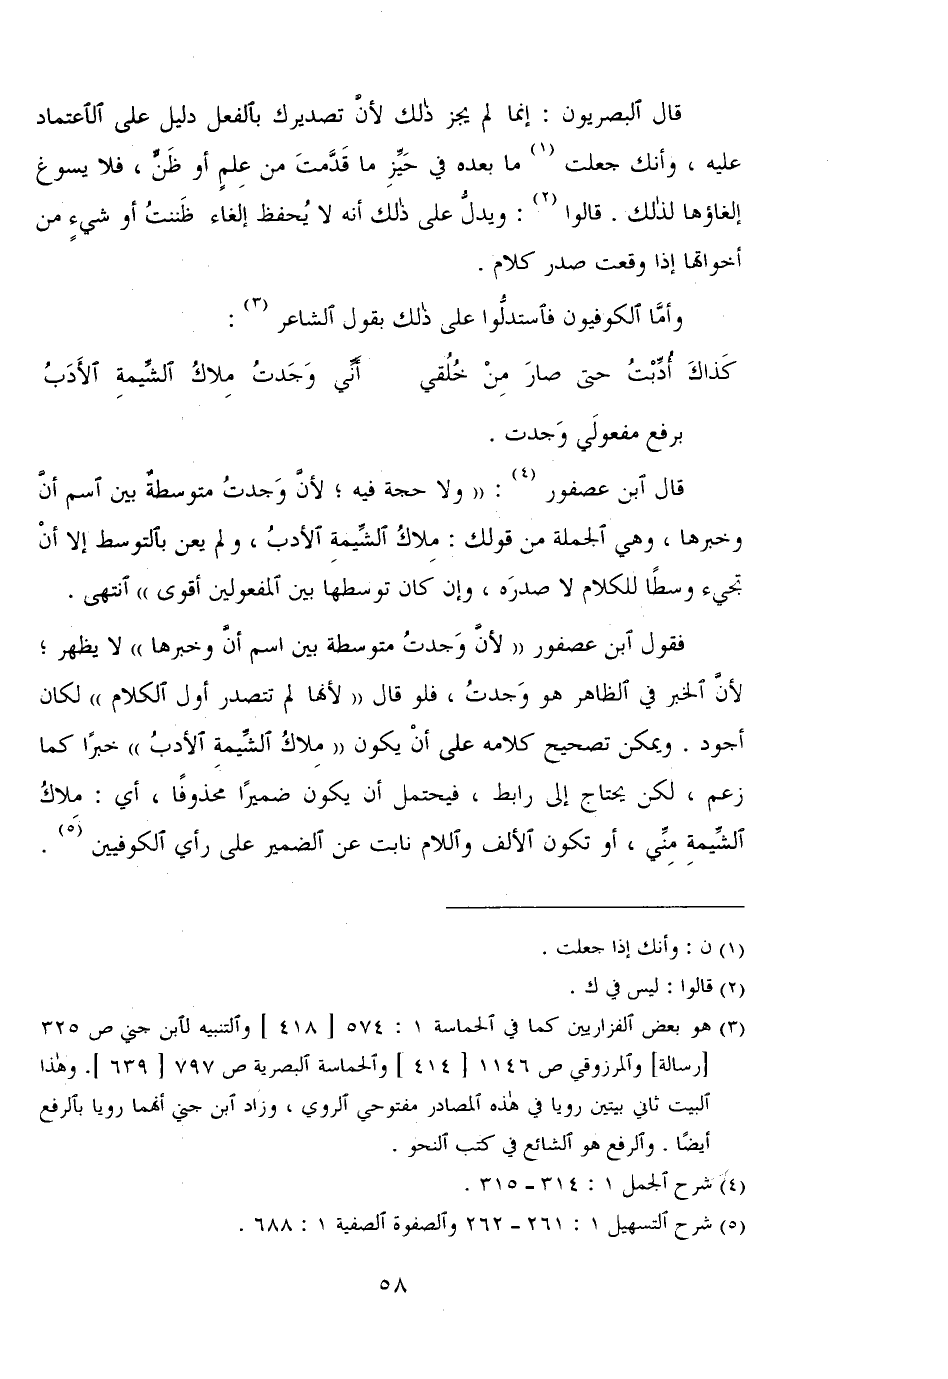 قال ٱلبصريون : إنما لم يجز ذٰلك لأنَّ تصديرك بٱلفعل دليل على ٱلٱعتماد
عليه ، وأنك جعلت (١) ما بعده في حَيِّزِ ما قَدَّمتَ من عِلمٍ أو ظَنٍّ ، فلا يسوغ
إلغاؤها لذٰلك . قالوا (٢) : ويدلُّ على ذٰلك أنه لا يُحفظ إلغاء ظَننتُ أو شيءٍ من
أخواتها إذا وقعت صدر كلام .
وأمَّا ٱلكوفيون فٱستدلُّوا على ذٰلك بقول ٱلشاعر (٣) :
كَذاكَ أُدِّبْتُ حتى صارَ مِنْ خُلُقي أَنِّي وَجَدتُ مِلاكُ ٱلشِّيمةِ ٱلأَدَبُ
برفع مفعولَي وَجدت .
قال ٱبن عصفور (٤) : (( ولا حجة فيه ؛ لأنَّ وَجدتُ متوسطةٌ بين ٱسم أنَّ
وخبرها ، وهي ٱلجملة من قولك : مِلاكُ ٱلشِّيمةِ ٱلأدبُ ، ولم يعن بٱلتوسط إلا أنْ
تجيء وسطًا للكلام لا صدرَه ، وإن كان توسطها بين ٱلمفعولين أقوى )) ٱنتهى .
فقول ٱبن عصفور (( لأنَّ وَجدتُ متوسطة بين اسم أنَّ وخبرها )) لا يظهر ؛
لأنَّ ٱلخبر في ٱلظاهر هو وَجدتُ ، فلو قال (( لأنها لم تتصدر أول ٱلكلام )) لكان
أجود . ويمكن تصحيح كلامه على أنْ يكون (( مِلاكُ ٱلشِّيمةِ ٱلأدبُ )) خبرًا كما
زعم ، لكن يحتاج إلى رابط ، فيحتمل أن يكون ضميرًا محذوفًا ، أي : مِلاكُ
ٱلشِّيمةِ مِنِّي ، أو تكون ٱلألف وٱللام نابت عن ٱلضمير على رأي ٱلكوفيين (٥) .
(١) ن : وأنك إذا جعلت .
(٢) قالوا : ليس في ك .
(٣) هو بعض ٱلفزاريين كما في ٱلحماسة ١ : ٥٧٤ [ ٤١٨ ] وٱلتنبيه لٱبن جني ص ٣٢٥
[رسالة] وٱلمرزوقي ص ١١٤٦ [ ٤١٤ ] وٱلحماسة ٱلبصرية ص ٧٩٧ [ ٦٣٩ ]. وهٰذا
ٱلبيت ثاني بيتين رويا في هٰذه ٱلمصادر مفتوحي ٱلروي ، وزاد ٱبن جني أنهما رويا بٱلرفع
أيضًا . وٱلرفع هو ٱلشائع في كتب ٱلنحو .
(٤) شرح ٱلجمل ١ : ٣١٤ - ٣١٥ .
(٥) شرح ٱلتسهيل ١ : ٢٦١ - ٢٦٢ وٱلصفوة ٱلصفية ١ : ٦٨٨ .
٥٨